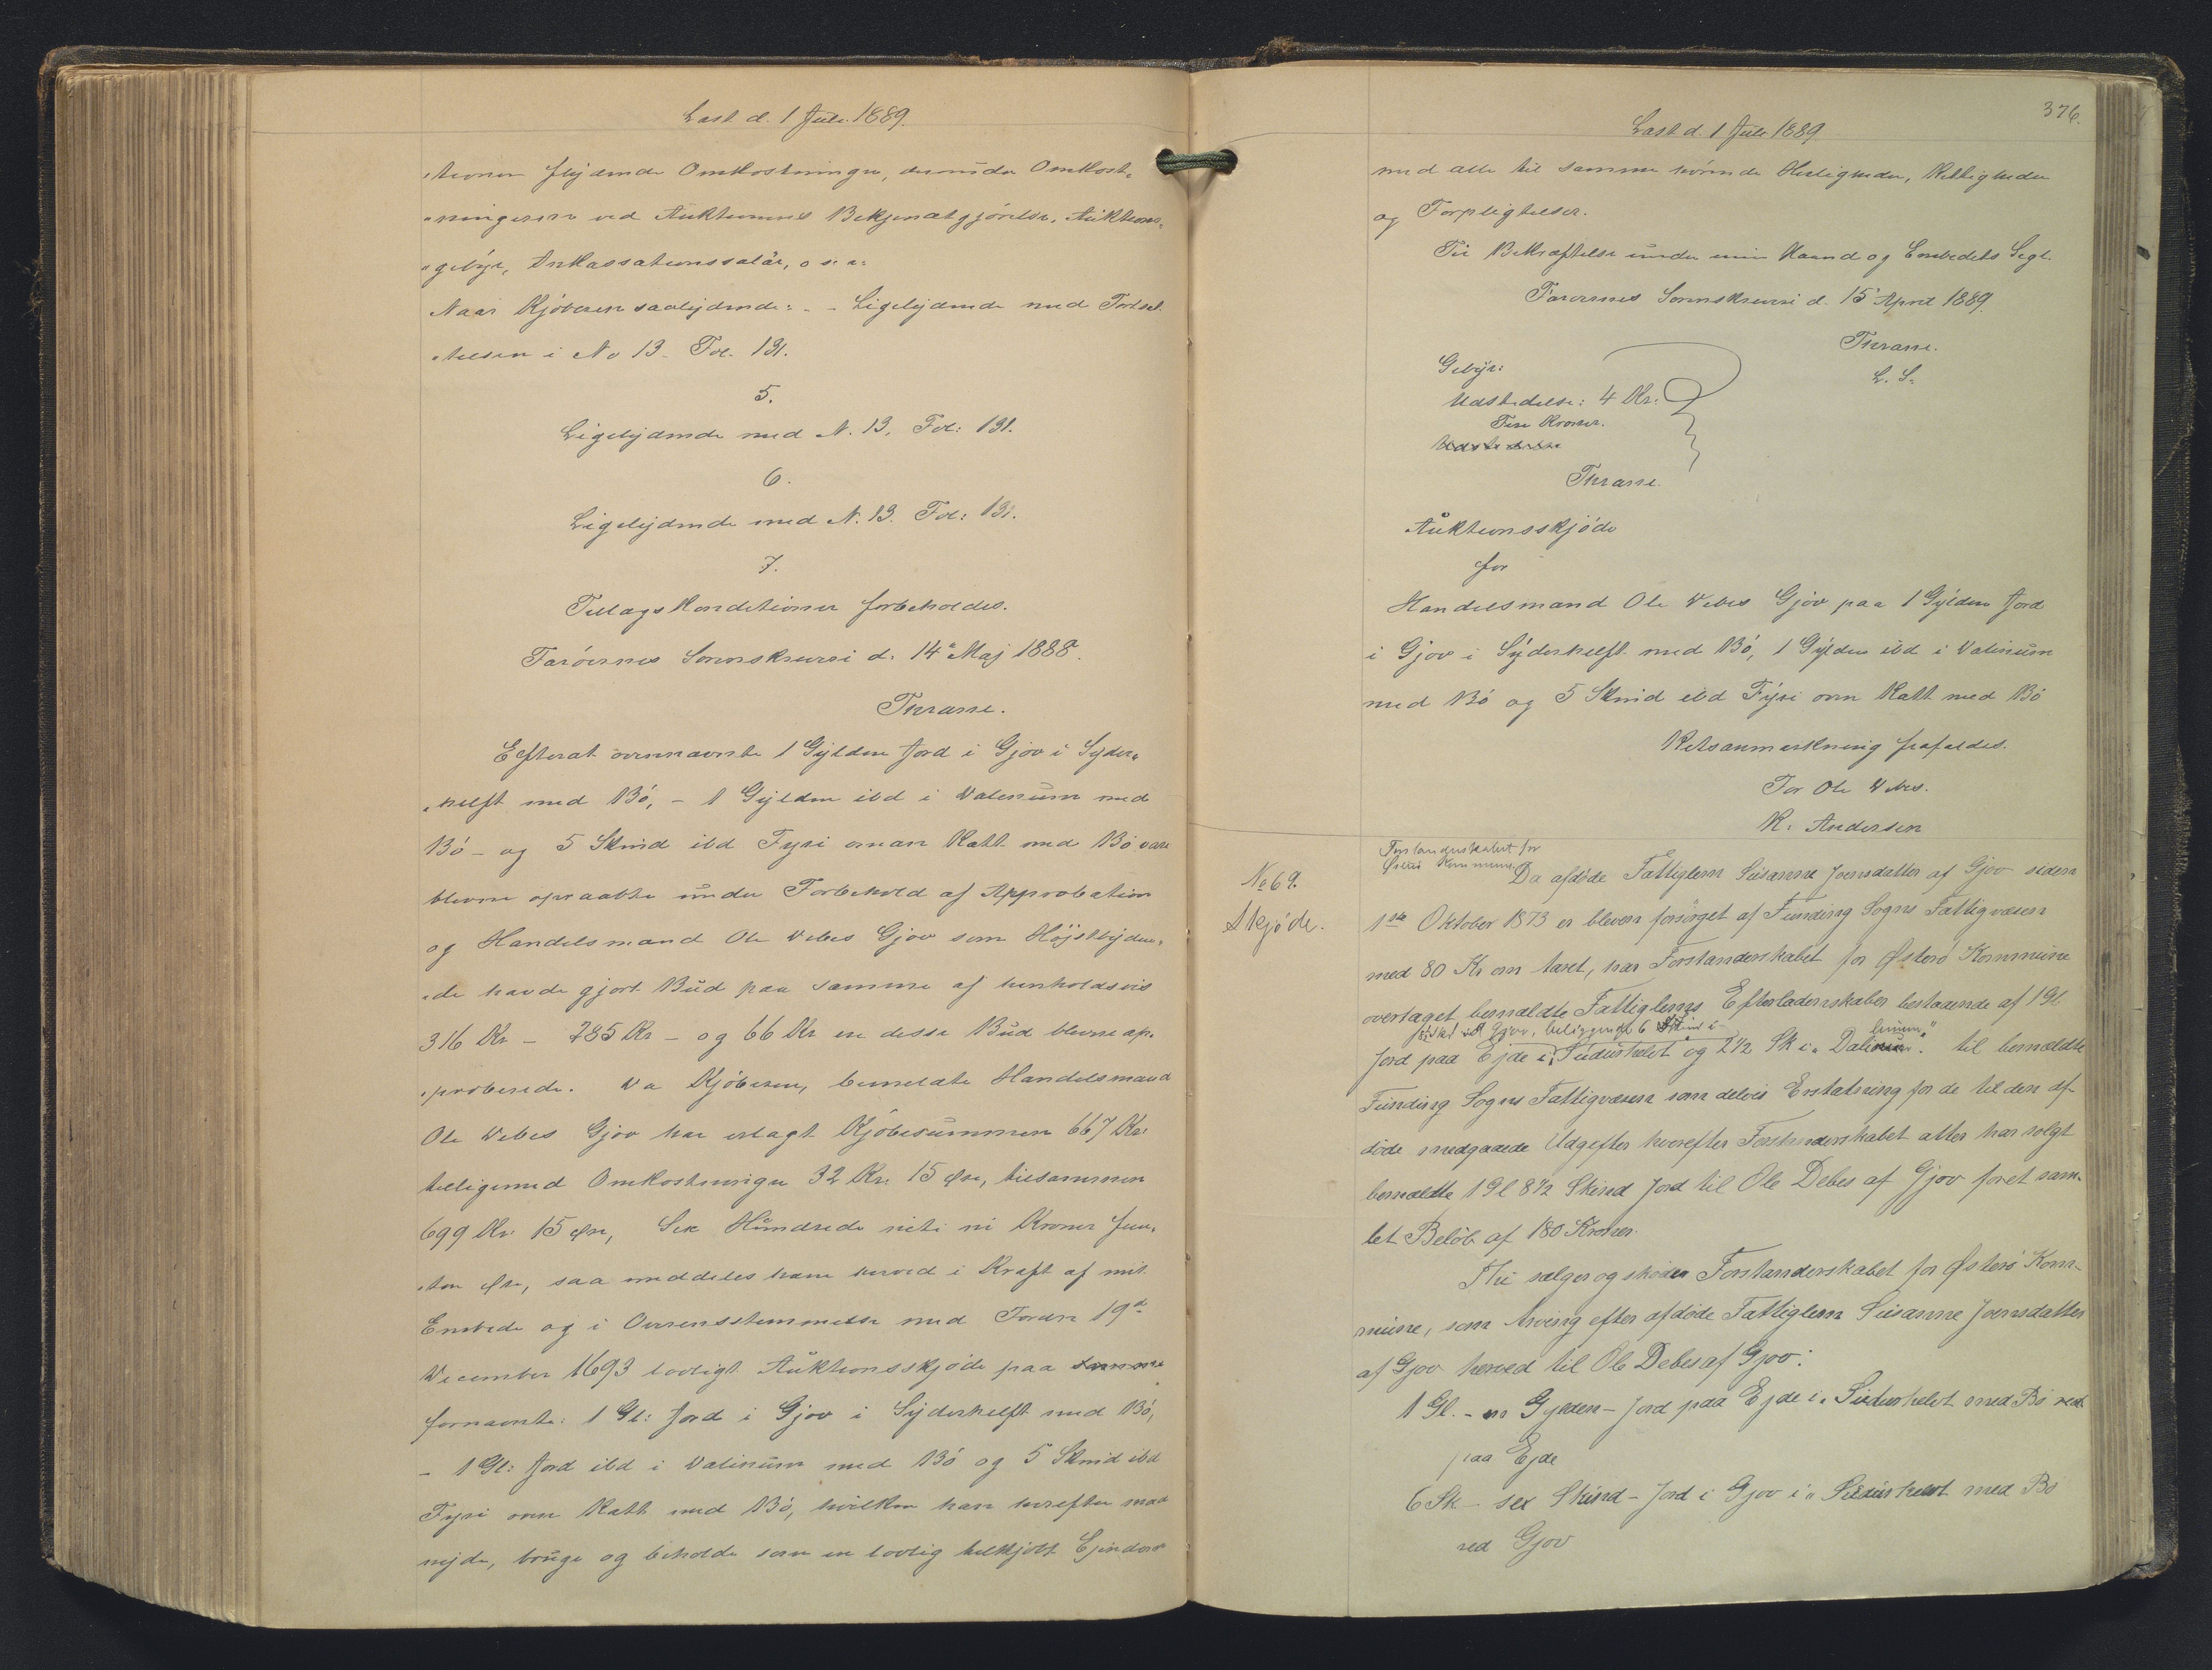 Læst d. 1 Juli 1889.
-tionen flydende Omkostninger, derunder Omkost-
-ningerne ved Auktionens Bekjendtgjørelse, Auktions-
-gebyr, Inkassationssalær, o. s. v.
Naar Kjøberen saalydende: - - Ligelydende med Fortsæt-
-telsen i No 13. Fol. 131.
5.
Ligelydende med N. 13. Fol: 131.
6.
Ligelydende med N. 13. Fol: 131.
7.
Tillægskonditioner forbeholdes.
Færøernes Sorenskriveri d. 14de Maj 1888.
Thrane.
Efterat ovennævnte 1 Gylden Jord i Gjov i Syder-
-helft med Bö, - 1 Gylden ibd i Dalinum med
Bö - og 5 Skind ibd Fyri oman Rætt med Bö vare
blevne opraabte under Forbehold af Approbation
og Handelsmand Ole Debes Gjov som Højstbyden-
-de havde gjort Bud paa samme af henholdsvis
316 Kr - 285 Kr - og 66 Kr ere disse Bud blevne ap-
-proberede. Da Kjøberen, bemeldte Handelsmand
Ole Debes Gjov har erlagt Kjøbesummen 667 Kr:
tilligemed Omkostninger 32 Kr. 15 Øre, tilsammen
699 Kr 15 Øre, Sex Hundrede niti ni Kroner fem-
-ten Øre, saa meddeles ham herved i Kraft af mit
Embede og i Overensstemmelse med Fordn 19de
December 1693 lovligt Auktionsskjøde paa samme
fornævnte: 1 Gl: Jord i Gjov i Syderhelft med Bö,
- 1 Gl: Jord ibd i Dalinum med Bö og 5 Skind ibd
Fyri oven Rætt med Bö, hvilken han herefter maa
nyde, bruge og beholde som en lovlig tilkjøbt Ejendom
376.
Læst d. 1 Juli 1889
med alle til samme hørende Herligheder, Rettigheder
og Forpligtelser.
Til Bekræftelse under min Haand og Embedets Segl.
Færøernes Sorenskriveri d. 15 April 1889.
Thrane.
L. S.
Gebyr:
Udstedelse: 4 Kr:
Fire Kroner.
Udstedelse
Thrane.
Auktionsskjöde
for
Handelsmand Ole Debes Gjov paa 1 Gylden Jord
i Gjov i Syderhelft med Bö, 1 Gylden ibd i Dalinum
med Bö og 5 Skind ibd Fyri oven Rætt med Bö
Retsanmærkning frafaldes.
For Ole Debes.
K. Andersen
No 69.
Skjöde.
Forstanderskabet for
Østerö Kommune
Da afdöde Fattiglem Susanne Joensdatter af Gjov siden
1ste Oktober 1873 er bleven forsörget af Funding Sogns Fattigvæsen
med 80 Kr om Aaret, har Forstanderskabet for Østerö Kommune
overtaget bemældte Fattiglems Efterladenskaber bestaaende af 1 Gl.
Jord ved Gjov, beliggende 6 Skind i
Jord paa Ejde i "Sudurhelvt og 2½ Sk i "Dalinum". til bemældte
Funding Sogns Fattigvæsen som delvis Erstatning for de til den af-
döde medgaaede Udgifter hvorefter Forstanderskabet atter har solgt
bemældte 1 Gl 8½ Skind Jord til Ole Debes af Gjov for et sam-
let Belöb af 180 Kroner.
Thi sælger og skøder Forstanderskabet for Østerö Kom-
mune, som Arving efter afdöde Fattiglem Susanne Joensdatter
af Gjov herved til Ole Debes af Gjov:
1 Gl. - en Gylden - Jord paa Ejde i "Sudurhelvt med Bö ved
paa Ejde
6 Sk - sex Skind - Jord i Gjov i "Sudurhelvt med Bö
ved Gjov